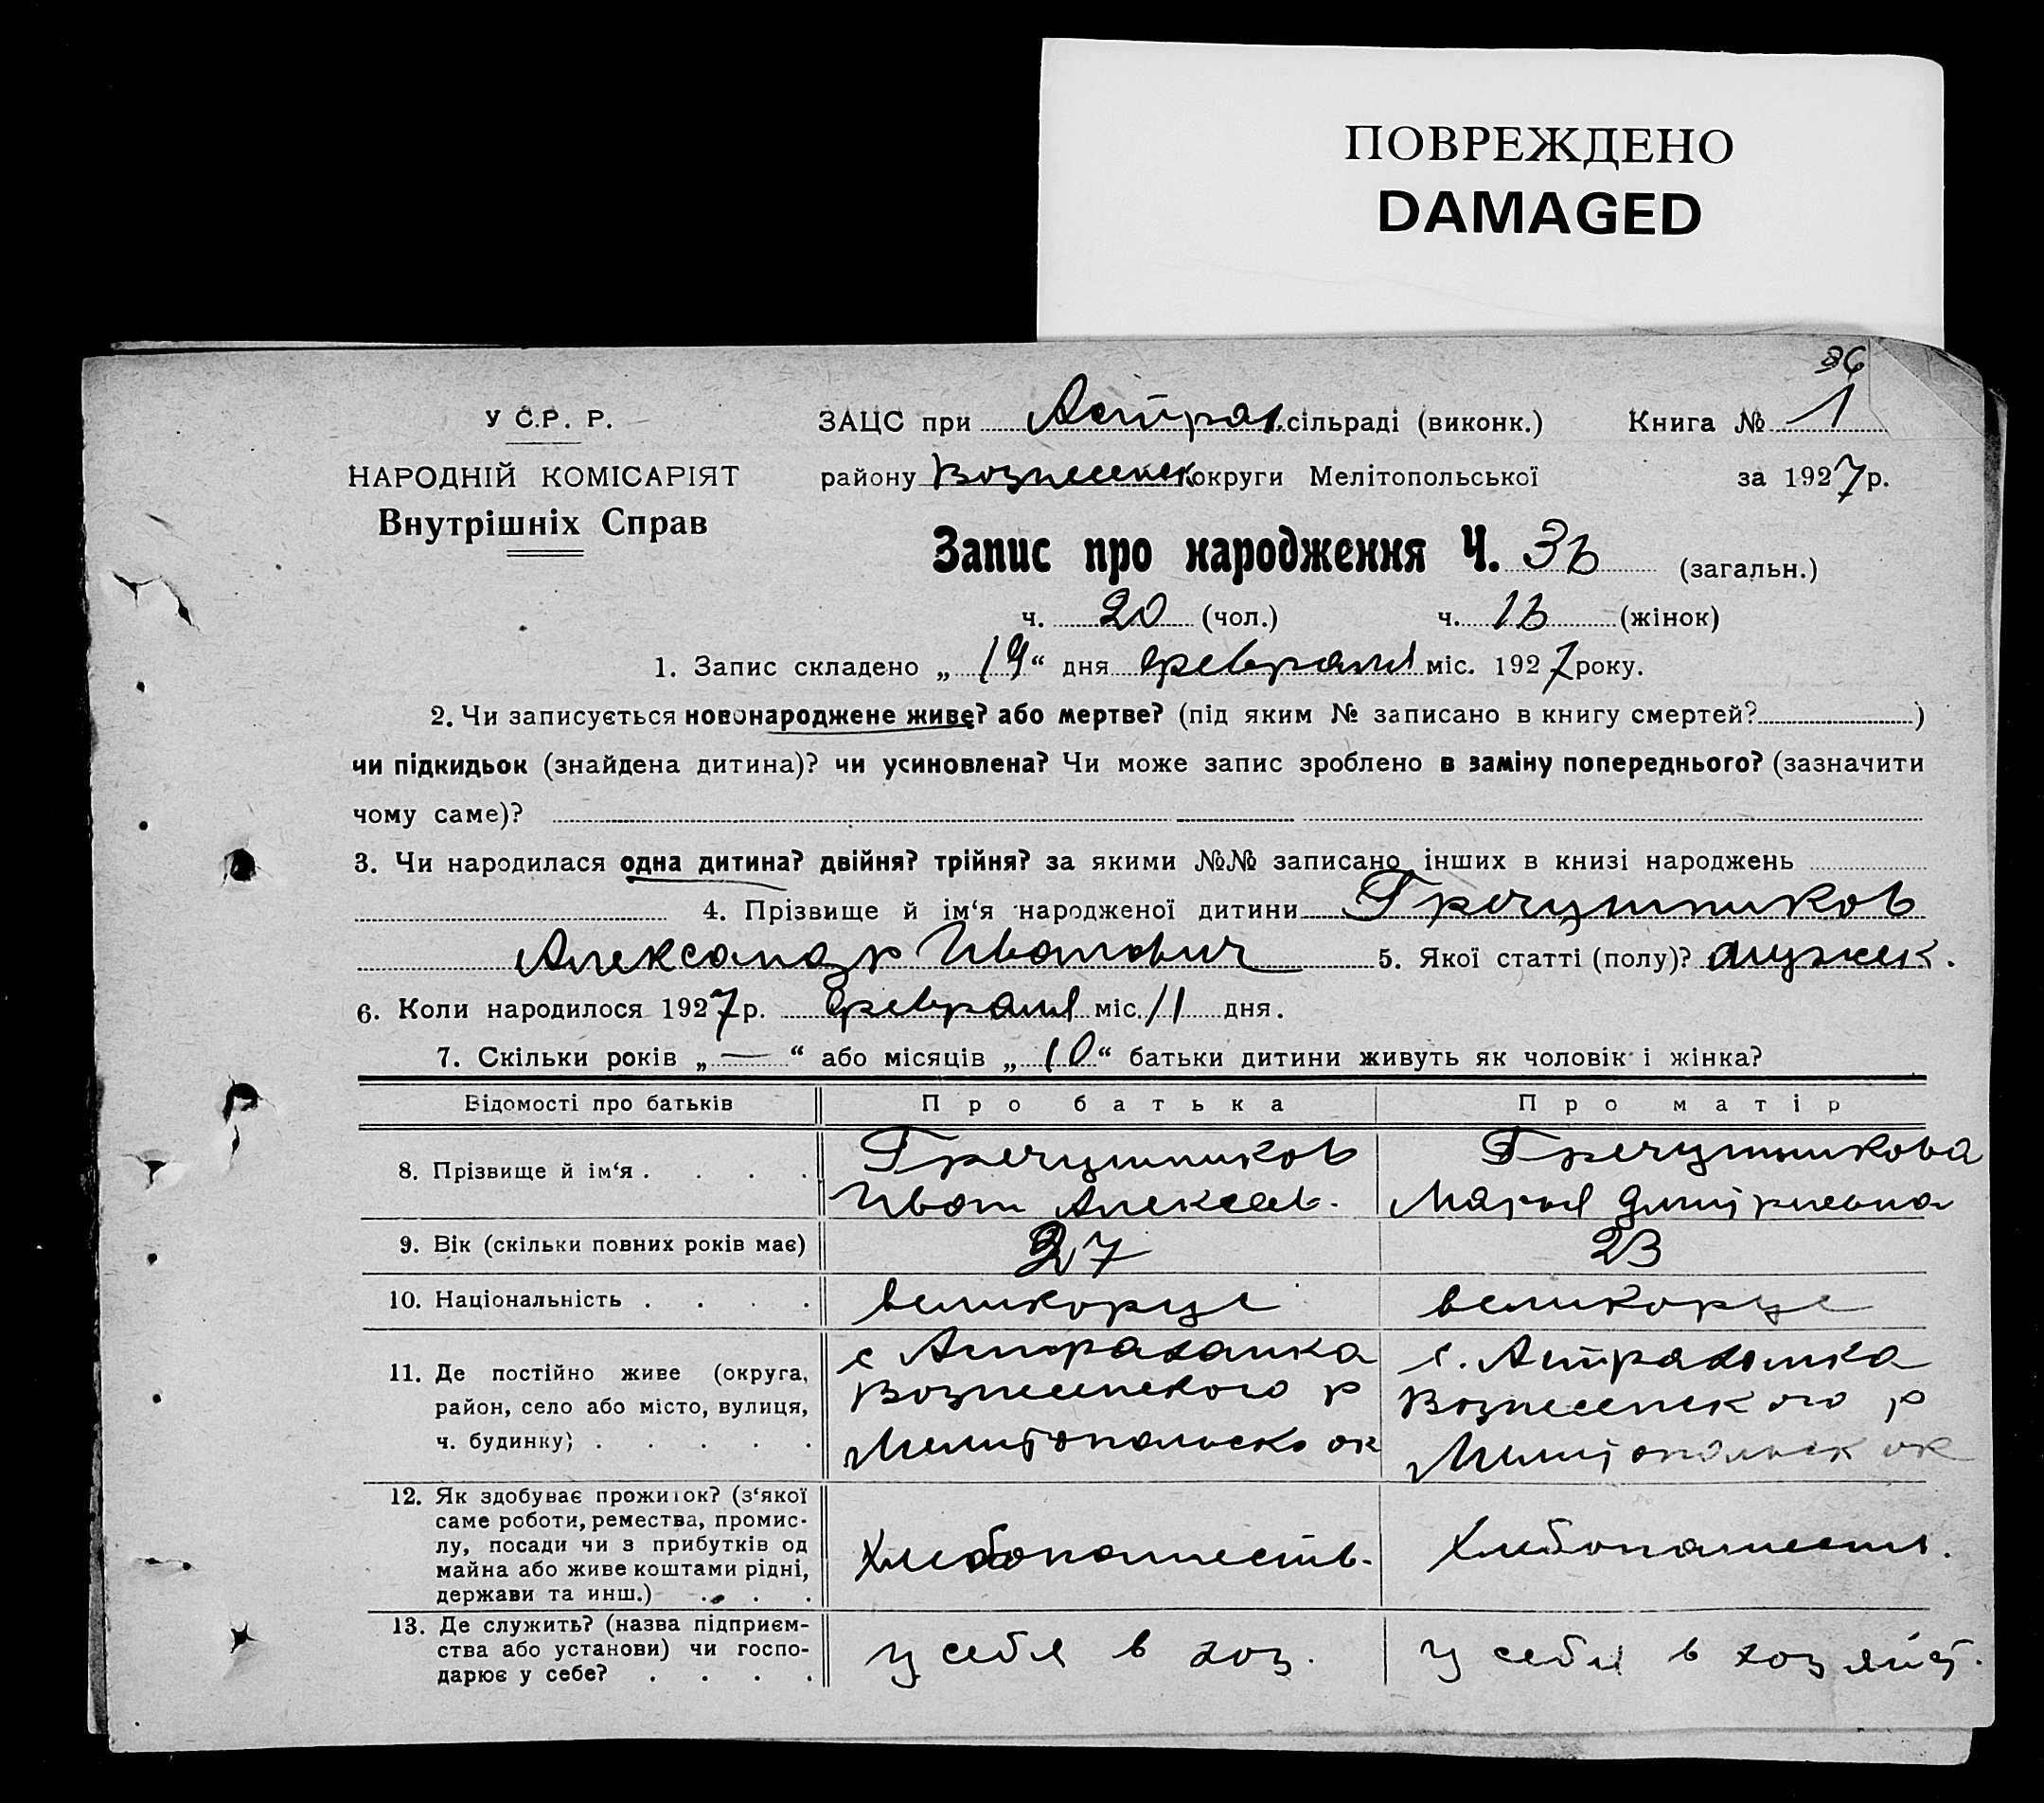 ПОВРЕЖДЕНО
DAMAGED
36
У С.Р. Р. ЗАЦС при Астрах. сільраді (виконк.) Книга № 1
НАРОДНІЙ КОМІСАРІЯТ району Вознесенск округи Мелітопольської за 1927 р.
Внутрішніх Справ
Запис про народження Ч. 33 (загальн.)
ч. 20 (чол.) ч. 13 (жінок)
1. Запис складено „19“ дня февраля міс. 1927 року.
2. Чи записується новонароджене живе? або мертве? (під яким № записано в книгу смертей? )
чи підкидьок (знайдена дитина)? чи усиновлена? Чи може запис зроблено в заміну попереднього? (зазначити
чому саме)?
3. Чи народилася одна дитина? двійня? трійня? за якими №№ записано інших в книзі народжень
4. Прізвище й ім‘я народженої дитини Гречушников
Александр Иванович 5. Якої статті (полу)? мужск.
6. Коли народилося 1927 р. февраля міс. 11 дня.
7. Скільки років „—“ або місяців „10“ батьки дитини живуть як чоловік і жінка?
Відомості про батьків Про батька Про матір
8. Прізвище й ім‘я . . . . Гречушников Гречушникова
Иван Алексеев. Мария Дмитриевна
9. Вік (скільки повних років має) 27 23
10. Національність . . . . великорус великорус
11. Де постійно живе (округа, с Астраханка с. Астраханка
район, село або місто, вулиця, Вознесенского р Вознесенского р
ч. будинку) . . . . . Мелитопольско ок Мелитопольск ок
12. Як здобуває прожиток? (з‘якої
саме роботи, ремества, промис-
лу, посади чи з прибутків од Хлебопашеств. Хлебопашеств.
майна або живе коштами рідні,
держави та инш.) . . .
13. Де служить? (назва підприєм-
ства або установи) чи госпо- у себя в хоз. у себя в хозяйст.
дарює у себе? . . . .